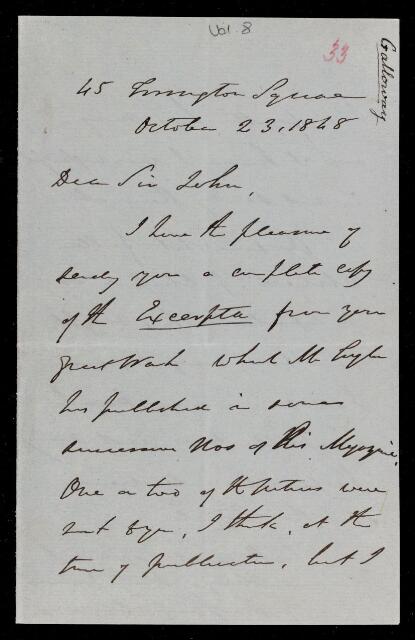 Vol. 8
33
Galloway
45 Torrington Square
October 23, 1848
Dear Sir John,
I have the pleasure of
sending you a complete copy
of the Excerpta from your
great Work which Mr
has published in some
successive Nos of this Magazine.
One or two of the were
sent to you, I think, at the
time of publication, but I